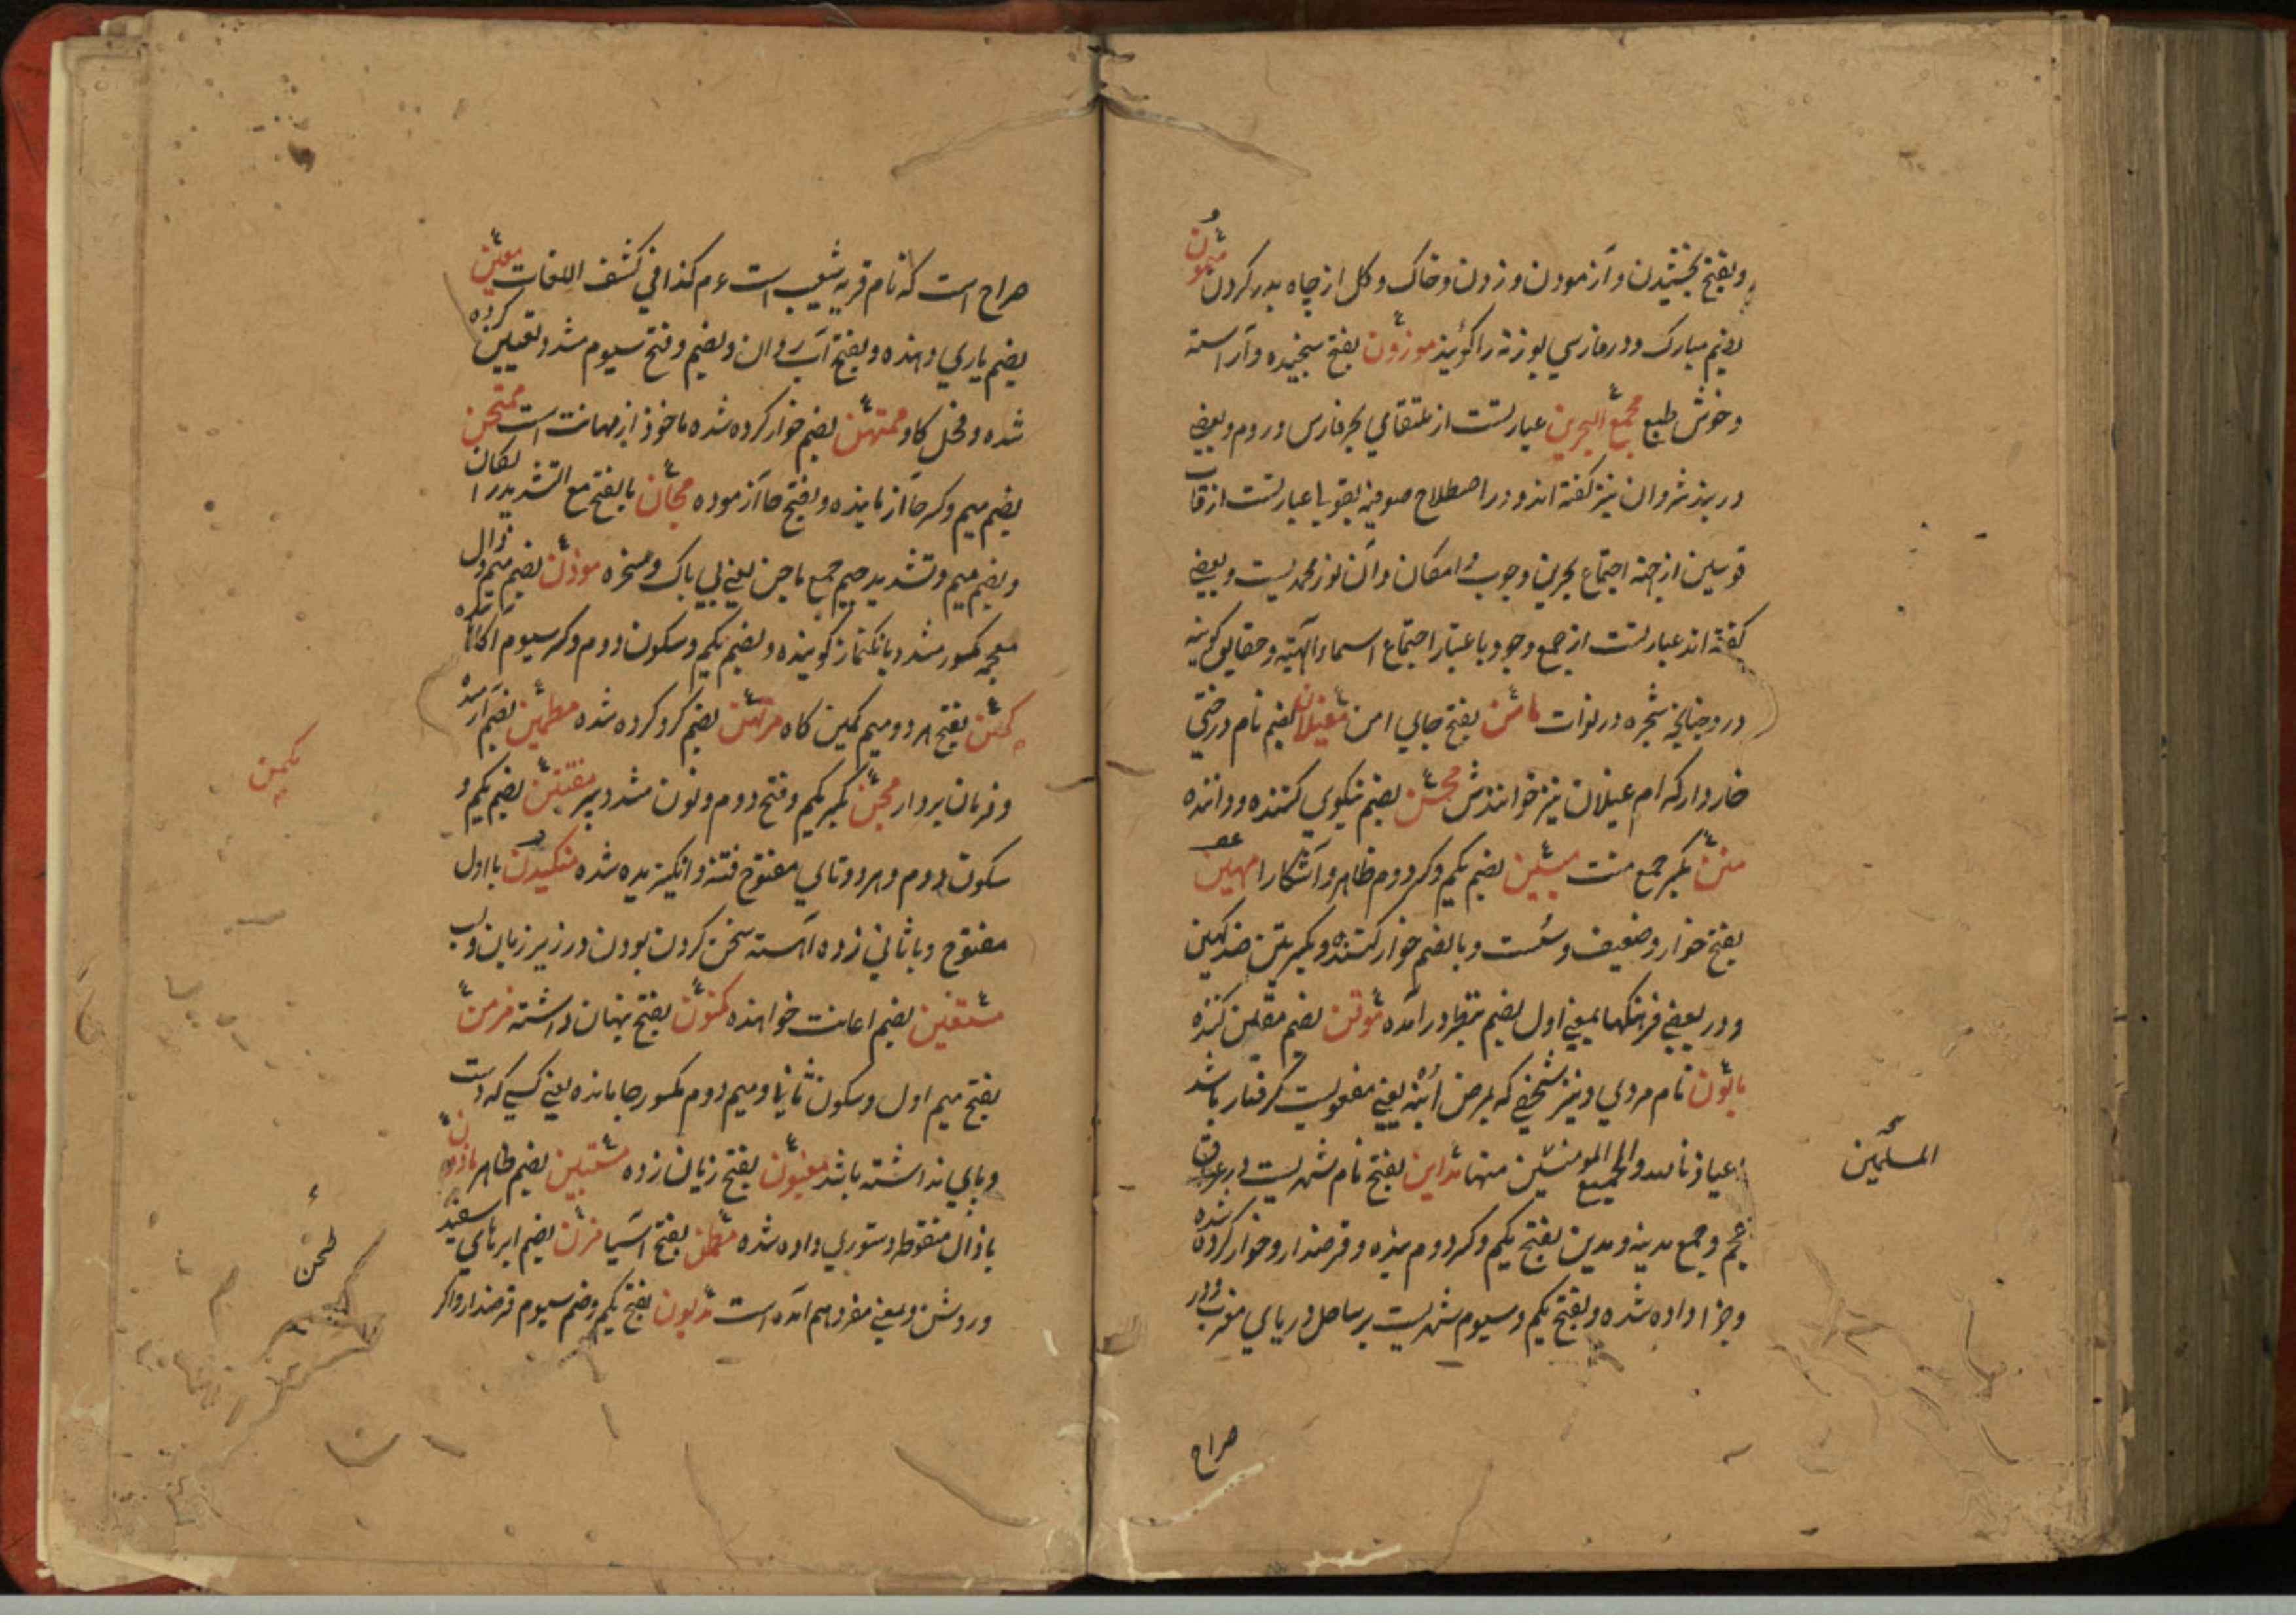 وبفتح بخشیدن و آزمودن و زدن و خاک و کل از چاه بدر کردن میمون
بضم مبارک و در فارسی بوزنه را کویند موزون بفتح سنجیده و آراسته
و خوش طبع مجمع البحرین عبارتست از ملتقای بحر فارس و روم و بعضی
دربند شروان نیز کفته اند و در اصطلاح صوفیه عبارتست از قاب
قوسین از جهة اجتماع بحرین وجوب و امکان و آن نور محمدیست و بعضی
کفته اند عبارتست از جمع وجود باعتبار اجتماع اسماء الهیته و حقایق کونیه
درو چنانچه شجره در نوات مامن بفتح جای امن مغیلان بضم نام درختی
خاردار که ام غیلان نیز خوانندش محسن بضم نیکویی کننده و داننده
منن بکسر جمع منت مبین بضم یکم و کسر دوم ظاهر و آشکارا مهین
بفتح خوار و ضعیف و سست و بالضم خوار کننده و بکسرتین ضد کهین
و در بعضی فرهنکها بمعنی اول بضم بنظر در آمده موقن بضم یقین کننده
مابون نام مردی و نیز شخصی که بمرض ابنه یعنی مفعولیت کرفتار باشد
عیاذنا لله والجمیع المومنین منها مداین بفتح نام شهریست در عراق
المسلمین
عجم و جمع مدینه و مدین بفتح یکم و کسر دوم بنده و قرضدار و خوار کرده شده
و جزا داده شده و بفتح یکم و سیوم شهریست بر ساحل دریای مغرب و در
صراح
صراح است که نام قریه شعیب است ءم کذا فی کشف اللغات معین
بضم یاری دهنده و بفتح آب روان و بضم و فتح سیوم مشدد تعیین کرده
شده و فحل کاو ممتهن بضم خوار کرده شده ماخوذ از مهانت است ممتحن
بضم میم و کسر حا آزماینده و بفتح حا آزموده مجان بالفتح مع التشدید رایکان
و بضم میم و تشدید جیم جمع ماجن یعنی بی باک و مسخره موذن بضم میم و ذال
معجمه مکسور مشدد بانک نماز کوینده و بضم یکم و سکون دوم و کسر سیوم آکاه کننده
مکمن بفتح هر دو میم کمین کاه مرتهن بضم کرو کرده شده مطمئن بضم آرمیده
مکمن
و فرمان بردار مجن بکسر یکم و فتح دوم و نون مشدد سپر مفتتن بضم یکم و
سکون دوم و هر دو تای مفتوح فتنه و انکیزیده شده منکیدن با اول
مفتوح و با ثانی زده آهسته سخن کردن بودن در زیر زبان و لب
مستعین بضم اعانت خواهنده مکنون بفتح پنهان داشته مزمن
بفتح میم اول و سکون ثانی و میم دوم مکسور جا مانده یعنی کسی که دست
و پای نداشته باشد مغبون بفتح زیان زده مستبین بضم ظاهر ماذون
با ذال منقوطه دستوری داده شده مطحن بفتح آسیا مزن بضم ابرهای سفید
طحن
و روشن و بمعنی مفرد هم آمده است مدیون بفتح یکم و ضم سیوم قرضدار و اکر